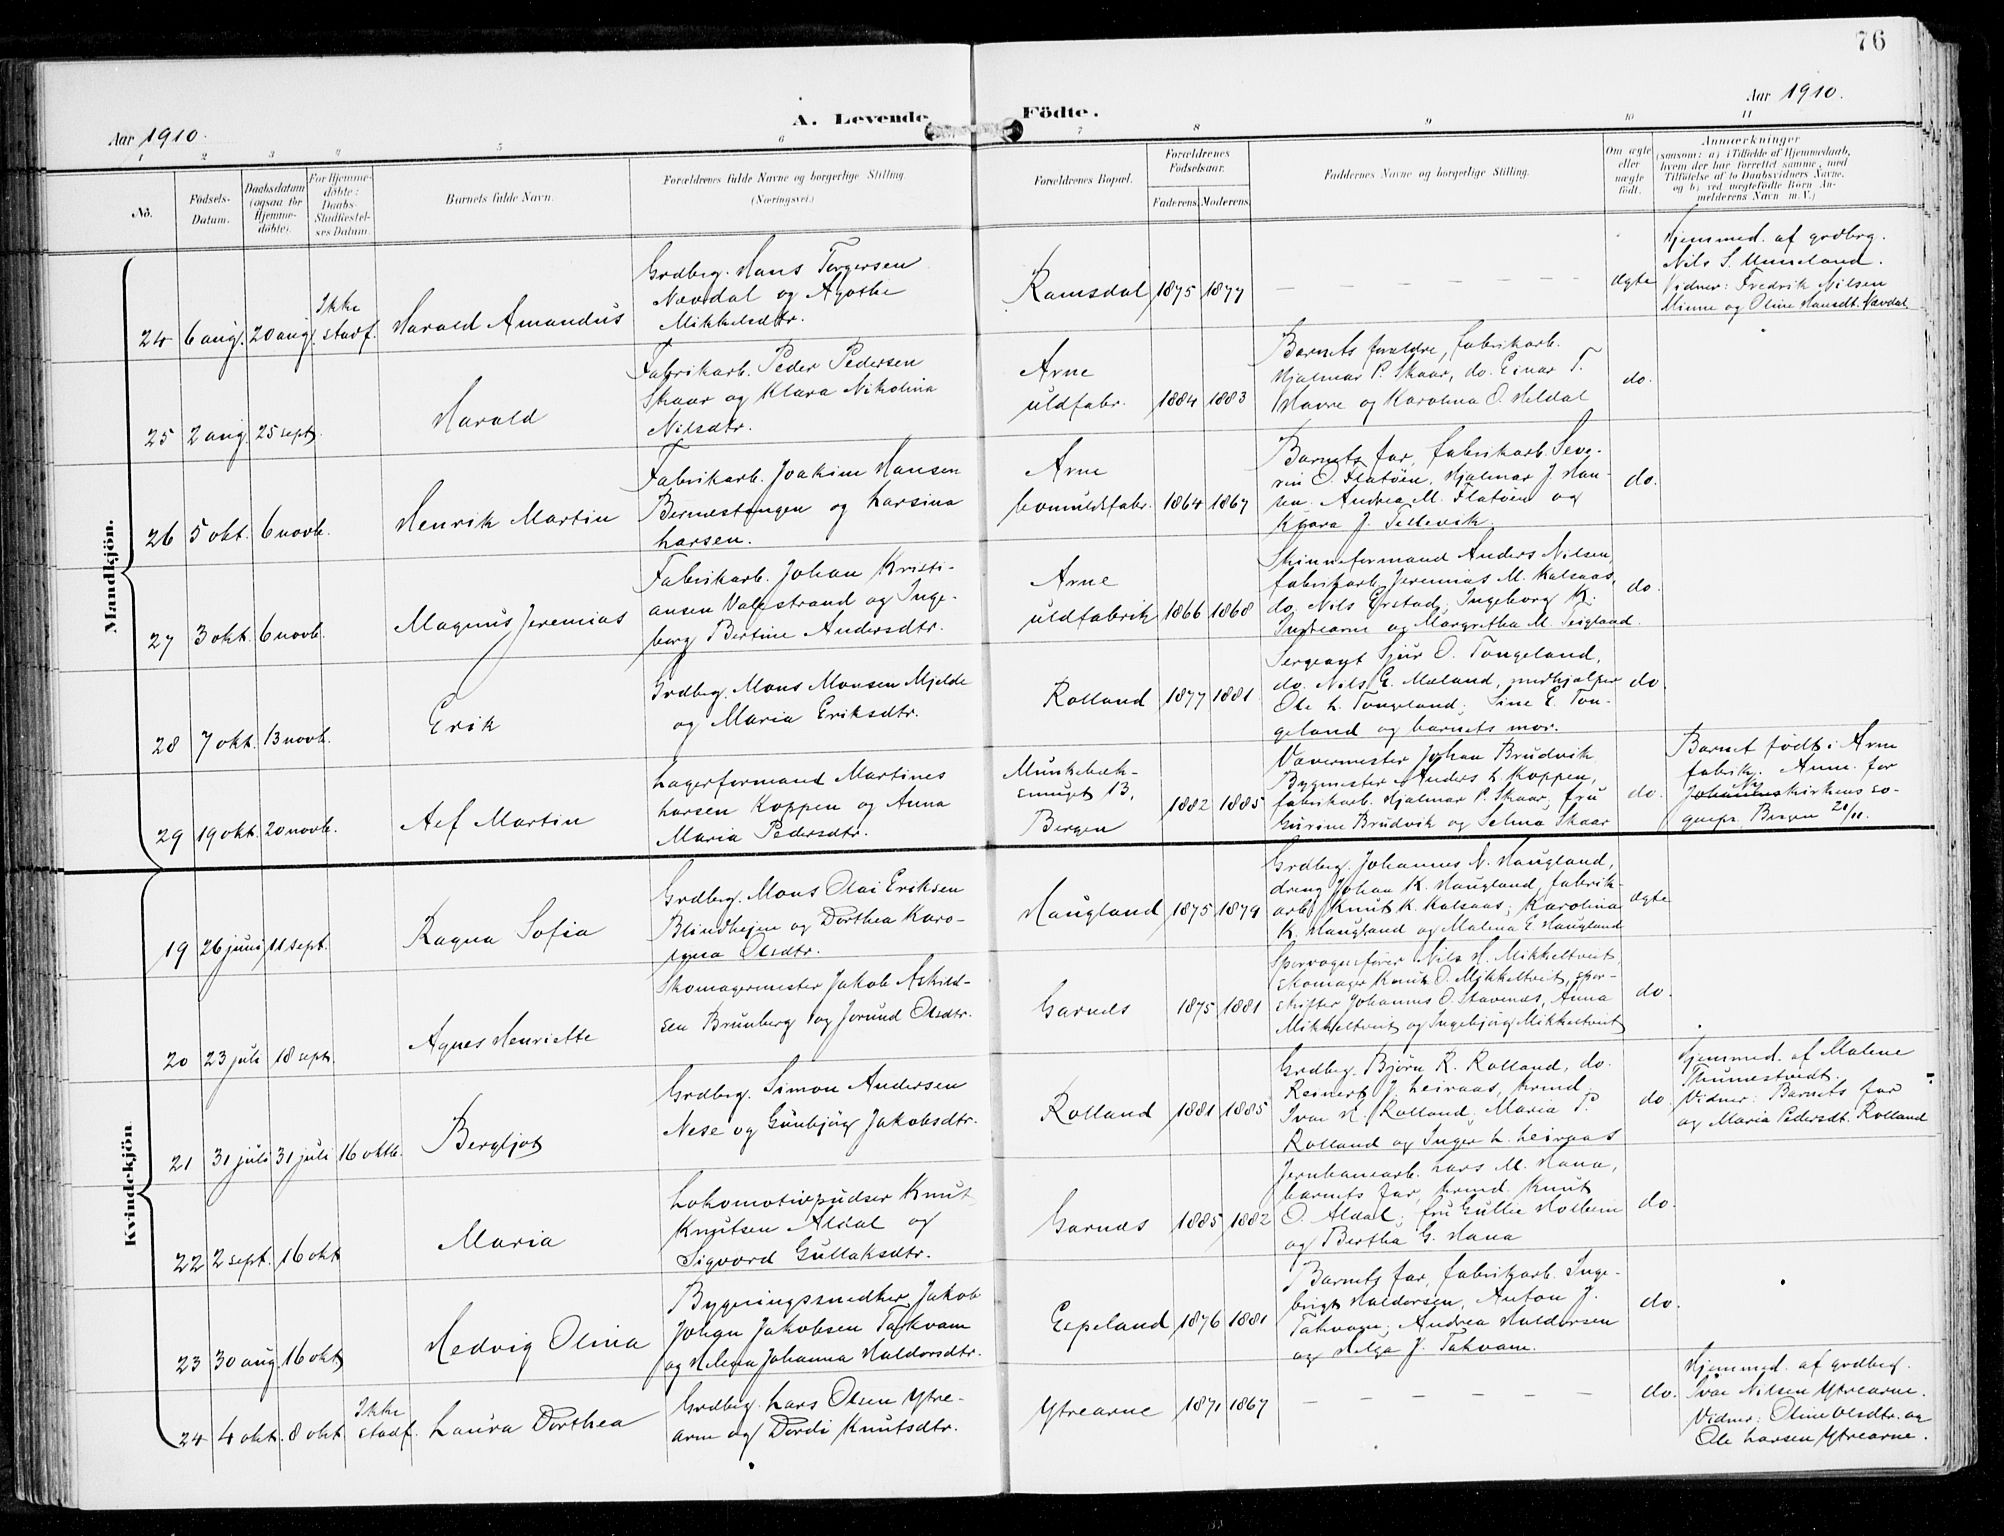 76
Aar 1910.
A. Levende Födte.
Aar 1910.
1 2 3 4 5 6 7 8 9 10 11
No.
Födsels-
Datum.
Daabsdatum
(ogsaa for
Hjemme-
döbte).
For Hjemme-
döbte:
Daabs-
Stadfestel-
ses Datum.
Barnets fulde Navn.
Forældrenes fulde Navne og borgerlige Stilling.
(Næringsvei.)
Forældrenes Bopæl.
Forældrenes
Fødselsaar.
Faderens. Moderens.
Faddernes Navne og borgerlige Stilling.
Om ægte
eller
uægte
født.
Anmærkninger
(saasom: a) i Tilfælde af Hjemmedaab,
hvem der har forrettet samme, med
Tilföielse af to Daabsvidners Navne,
og b) ved uægtefödte Börn An-
melderens Navn m. V.)
Mandkjön.
24 6 aug. 20 aug. Ikke
stadf.
Harald Amandus
Grdbrg. Hans Torgersen
Nævdal og Agathe
Mikkelsdtr.
Ramsdal 1875 1877
— — — — — —
ægte
Hjemmed. af grdbrg.
Nils S. Unneland.
Vidner: Fredrik Nilsen
Minne og Oline Hansdt. Nævdal
25 2 aug. 25 sept.
Harald
Fabrikarb. Peder Pedersen
Skaar og Klara Nikolina
Nilsdtr.
Arne
uldfabr. 1884 1883
Barnets foreldre, fabrikarb.
Hjalmar P. Skaar, do. Einar T.
Havre og Karolina O. Heldal
do.
26 5 okt. 6 novb.
Henrik Martin
Fabrikarb. Joakim Hansen
Bernestangen og Larsina
Larsen.
Arne
bomuldsfabr. 1864 1867
Barnets far, fabrikarb. Seve-
rin O. Flatøen, Hjalmar J. Han-
sen. Andrea M. Flatøen og
Klara J. Tellevik.
do.
27 3 okt. 6 novb.
Magnus Jeremias
Fabrikarb. Johan Kristi-
ansen Valestrand og Inge-
borg Bertine Andersdtr.
Arne
uldfabrik 1866 1868
Skinneformand Anders Nilsen,
fabrikarb. Jeremias M. Kalsaas,
do. Nils Erstad; Ingeborg K.
Indrearne og Margretha M. Seigland.
do.
28 7 okt. 13 novb.
Erik
Grdbrg. Mons Monsen Mjelde
og Maria Eriksdtr.
Rolland 1877 1881
Sergeant Sjur O. Tongeland,
do. Nils E. Mæland, medhjælper
Ole L. Tongeland; Sine E. Ton-
geland og barnets mor.
do.
29 19 okt. 20 novb.
Alf Martin
Lagerformand Martines
Larsen Koppen og Anna
Maria Pedersdtr.
Munkebæk-
smuget 13,
Bergen
1882 1885
Vævermester Johan Brudvik
Bygmester Anders L. Koppen,
fabrikarb. Hjalmar P. Skaar; fru
Gurine Brudvik og Selma Skaar
do.
Barnet født i Arne
fabrik. Anm. for
Ny
Johanneskirkens so-
gnepr. Bergen 21/11.
Kvindekjön
19 26 juni 11 sept.
Ragna Sofia
Grdbrg. Mons Olai Eriksen
Blindhejen og Dorthea Karo-
lina Olsdtr.
Haugland 1875 1879
Grdbrg. Johannes N. Haugland,
dreng Johan K. Haugland, fabrik-
arb. Knut K. Kalsaas; Karolina
K. Haugland og Malena E. Haugland
ægte
20 23 juli 18 sept.
Agnes Henriette
Skomagermester Jakob Askild-
sen Brunberg og Jorund Olsdtr.
Garnes 1875 1881
Sporvognsfører Nils H. Mikkeltveit
skomager Knut O. Mikkeltveit, spor-
skifter Johannes O. Stavenes, Anna
Mikkeltveit og Ingebjørg Mikkeltveit
do.
21 31 juli 31 juli 16 oktb.
Bergljot
Grdbrg. Simon Andersen
Nese og Gunbjørg Jakobsdtr.
Rolland 1881 1885
Grdbrg. Bjørn R. Rolland, do.
Reinert J. Leiraas, krmd.
Ivar H. Rolland; Maria P.
Rolland og Inger L. Leiraas
do.
Hjemmed. af Malene
Thunestvedt.
Vidner: Barnets far
og Maria Pedersdt. Rolland
22 2 sept. 16 okt
Maria
Lokomotivpudser Knut
Knutsen Aldal og
Sigvord Gullaksdtr.
Garnes 1885 1882
Jernbanearb. Lars M. Hana,
barnets far, krmd. Knut
O. Aldal; fru Gullie Holbein
og Bertha G. Hana
do.
23 30 aug. 16 okt
Hedvig Olina
Bygningssnedker Jakob
Johan Jakobsen Takvam
og Helga Johanna Haldorsdtr.
Espeland 1876 1881
Barnets far, fabrikarb. Inge-
brigt Haldorsen, Anton J.
Takvam; Andrea Haldorsen
og Helga J. Takvam.
do.
24 4 okt. 8 okt. Ikke
stadf.
Laura Dorthea
Grdbrg. Lars Olsen Ytre-
arne og Dordi Knutsdtr.
Ytrearne 1871 1867
— — — — — —
do.
Hjemmed. af grdbrg.
Ivar Nilsen Ytrearne.
Vidner: Oline Olsdtr. og
Ole Larsen Ytrearne.